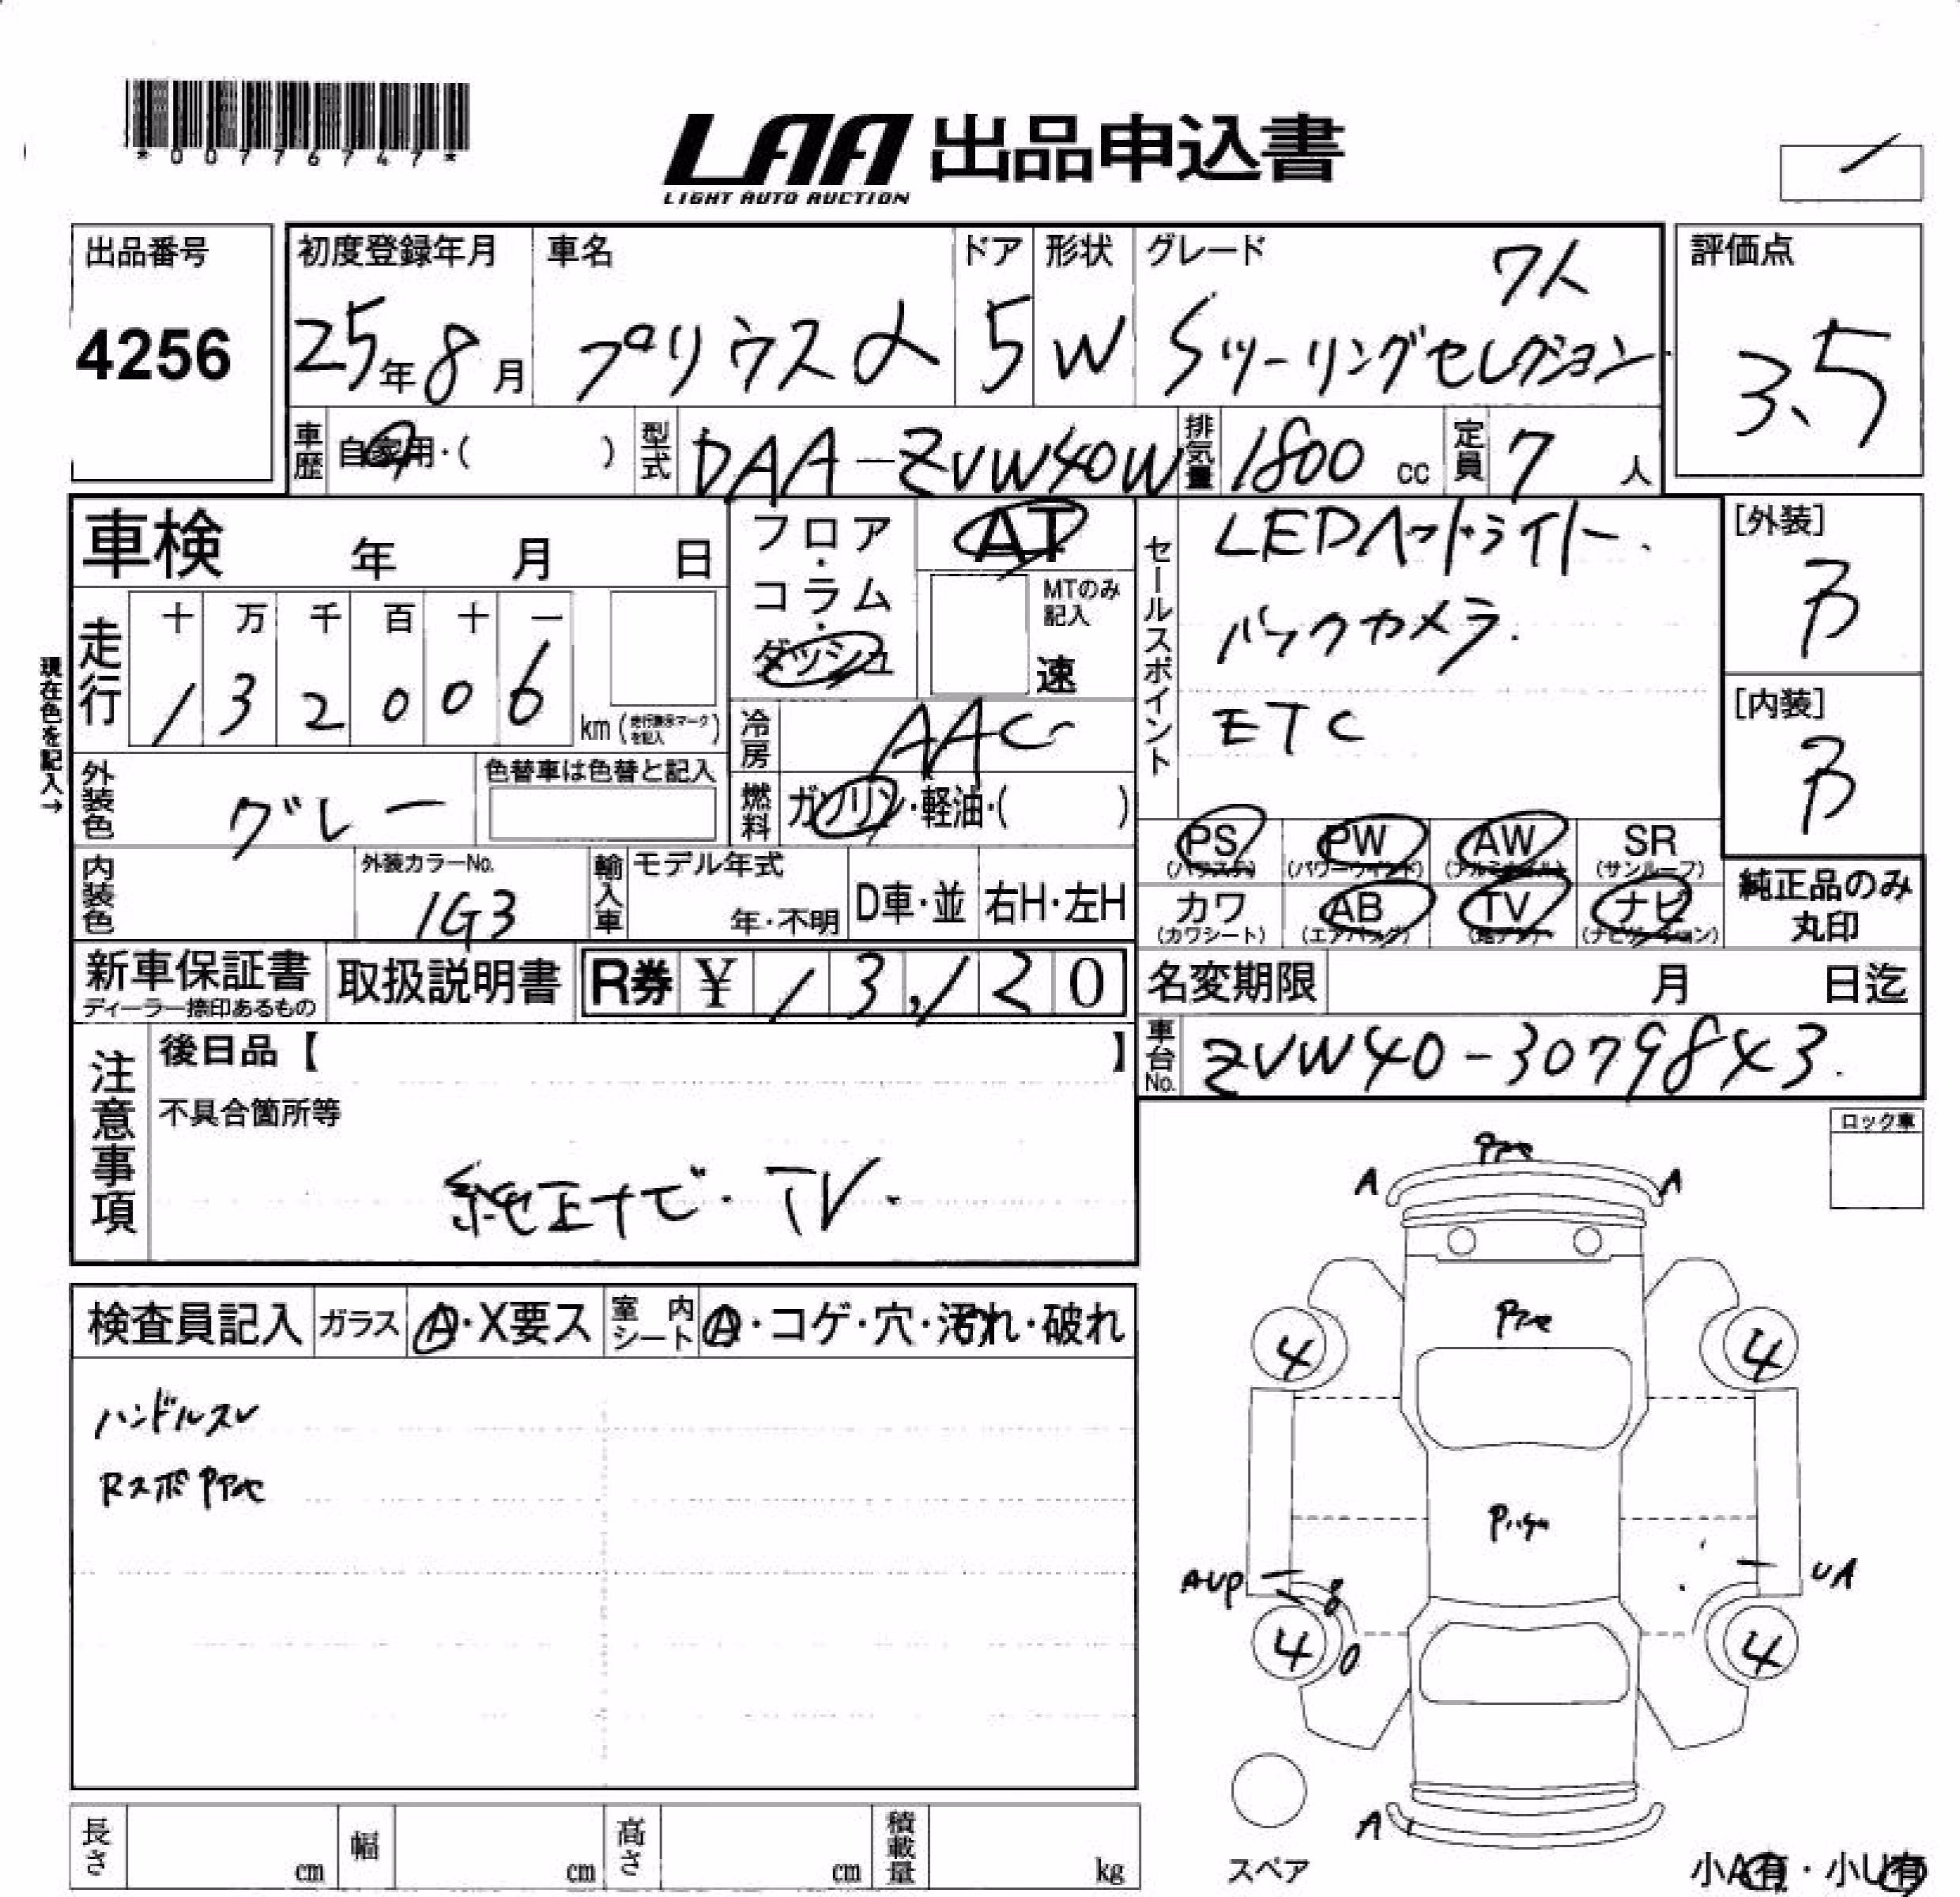 *00776747*
LAA 出品申込書
LIGHT AUTO AUCTION
出品番号
4256
初度登録年月
25年8月
車名
プリウスα
ドア
5
形状
W
グレード
7人
Sツーリングセレクション
評価点
3.5
車歴
自家用・( )
型式
DAA-ZVW40W
排気量
1800 cc
定員
7 人
車検 年 月 日
現在色を記入→
走行
十 万 千 百 十 一
1 3 2 0 0 6
km (走行表示マークを記入)
フロア・コラム・ダッシュ
AT
MTのみ記入
速
冷房
AAC
燃料
ガソリン・軽油・( )
セールスポイント
LEDヘッドライト.
バックカメラ.
ETC
[外装]
B
[内装]
B
外装色
グレー
色替車は色替と記入
内装色
外装カラーNo.
1G3
輸入車
モデル年式
年・不明
D車・並
右H・左H
PS (パワステ)
PW (パワーウインド)
AW (アルミホイル)
SR (サンルーフ)
カワ (カワシート)
AB (エアバッグ)
TV (地デジ)
ナビ (ナビゲーション)
純正品のみ
丸印
新車保証書
ディーラー捺印あるもの
取扱説明書
R券 ¥ 13,120
名変期限 月 日迄
車台No.
ZVW40-3079843.
注意事項
後日品【 】
不具合箇所等
純正ナビ・TV.
ロック車
検査員記入
ガラス
A・X要ス
室内シート
A・コゲ・穴・汚れ・破れ
ハンドルスレ
A
A
4
4
AUP
8
UA
4
0
4
A
スペア
小A有・小U有
長さ cm
幅 cm
高さ cm
積載量 kg